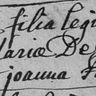 filia legi
aria De
joanna